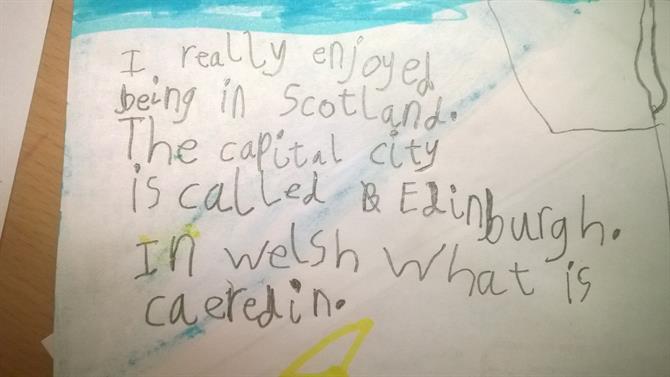 I really enjoyed
being in Scotland.
The capital city
is called Edinburgh.
In welsh what is
caeredin.